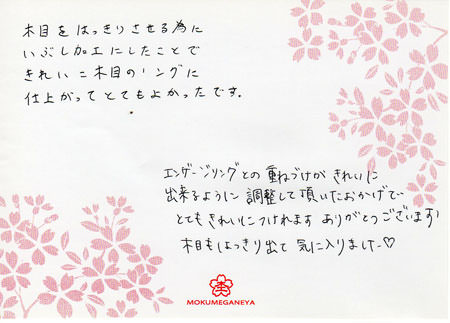 木目をはっきりさせる為に
いぶし加工にしたことで
きれいに木目のリングに
仕上がってとてもよかったです。
エンゲージリングとの重ねづけがきれいに
出来るように調整して頂いたおかげで
とてもきれいにつけれます ありがとうございます
木目もはっきり出て 気に入りましたー♡
MOKUMEGANEYA